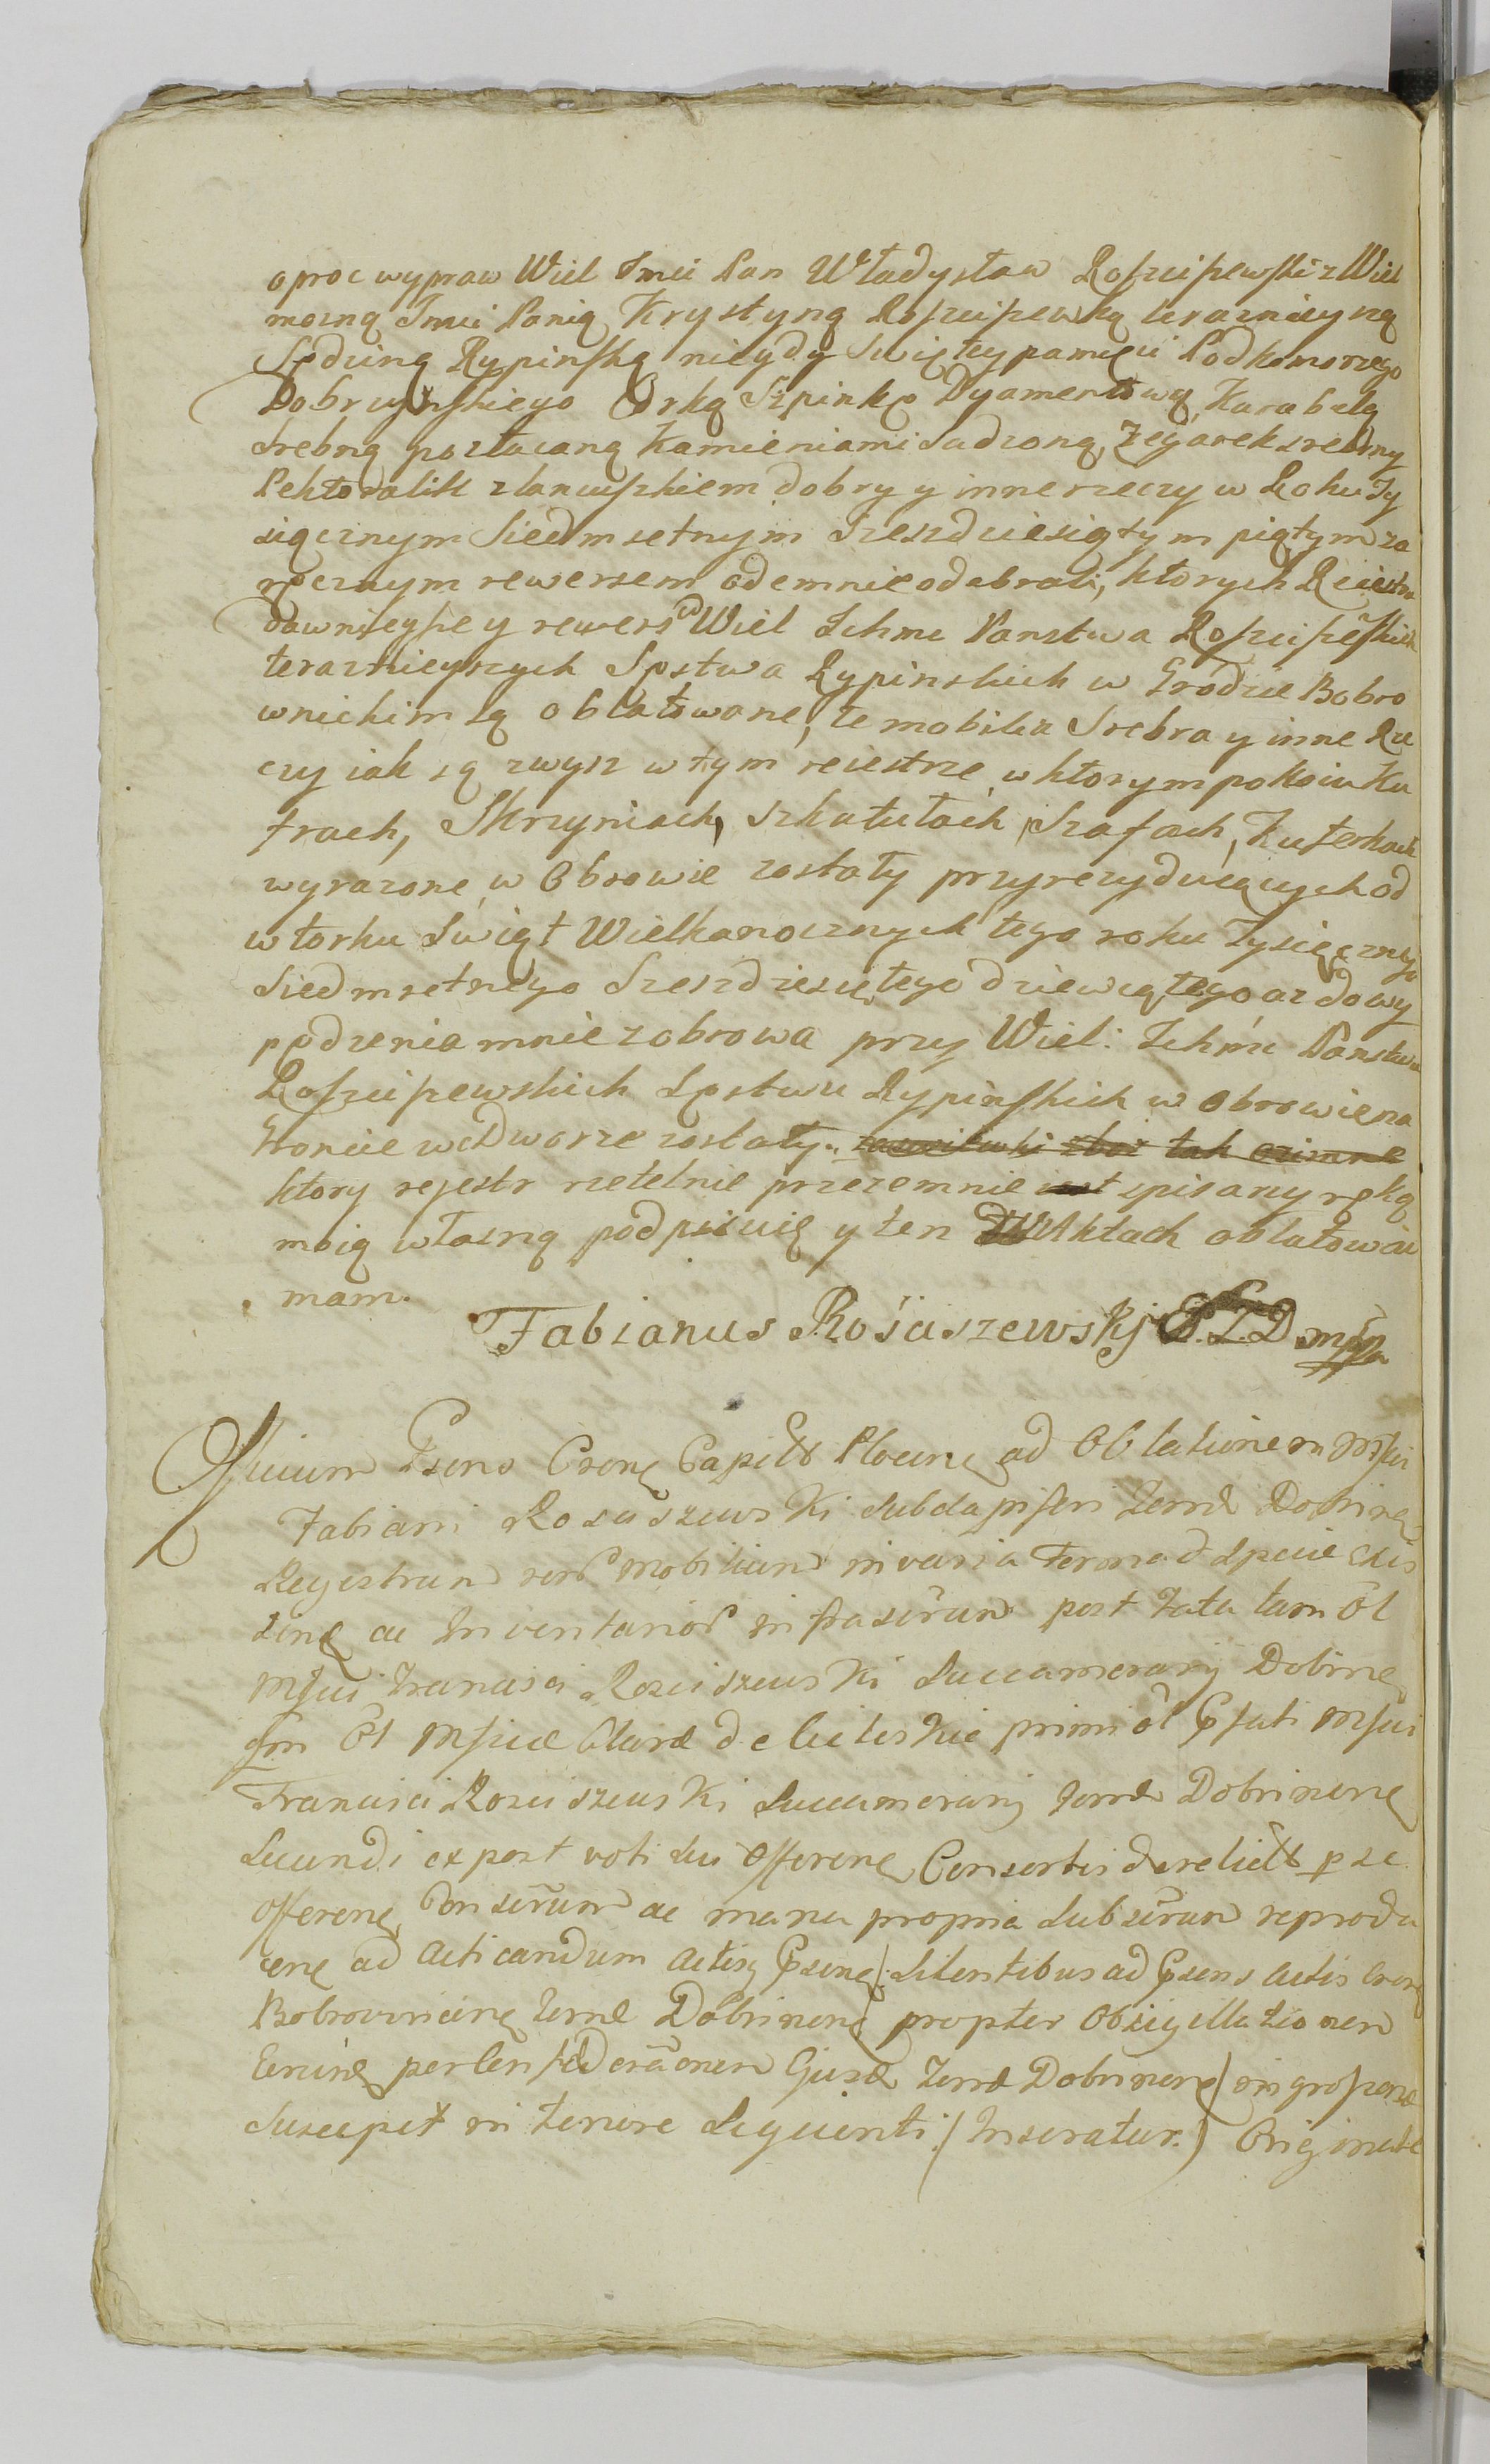 oproc wypraw Wiel Jmci Pan Władysław Rosciszewski z Wiel
mozną Jmci Panią Krystyną Rosciszewską teraznieyszą
Sędziną Rypinską niegdy Swiętey pamięci Podkomorzego
Dobrzynskiego Corką Szpinkę Dyamentową, Karabelę
Srebną pozłacaną Kamieniami Sadzoną, Zegarek srebrny
Pektoralik z łancuszkiem dobry y inne rzeczy w Roku Ty
siącznym Siedmsetnym Szeszdziesiątym piątym za
ręcznym rewersem odemnie odebrali, ktorych Reiestra
dawnieysze y rewers Wiel Ichmc Panstwa Rosciszewskich
teraznieyszych Sęstwa Rypinskich w Grodzie Bobro
wnickim są oblatowane, te mobilia Srebra y inne Rze
czy iak są zwysz w tym reiestrze, w ktorym pokoiu Ku
frach, Skrzyniach, Szkatułach, Szafach, Kuferkach
wyrazone, w Obrowie zostały przy rezyduiących od
wtorku Swiąt Wielkanocznych tego roku Tysiącznego
Siedmsetnego Szeszdziesiętego dziewiątego, az do wy
pędzenia mnie z obrowa przy Wiel: Ichmc Panstwu
Rosciszewskich Sęstwu Rypinskich w Obrowie na
Groncie w Dworze zostały. zasiewki zboz tak ozimne
ktory rejestr rzetelnie przezemnie iest spisany ręką
moią własną podpisuię y ten w Aktach oblatowac
mam.
Fabianus Rościszewskj P.Z.D. mpp
Officium Psens Crense Capitle Plocense ad Oblationem Mfci
Fabiani Rosciszewski Subdapiferi Terrae Dobrinen
Regestrum rerum Mobilium in varia Forma et Specie Exis
tens ac Inventarior infrascrum post Fata tam ol
Mfci Francisci Rosciszewski Succamerarij Dobrinen
qm Ol Mficae Clarae de Cieleskie primi ol Psati Mfici
Francisci Rosciszewski Succamerarij Terrae Dobrinens
Secundi ex post voti Sui Offerens Consortis derelict p se
Offerens Conscrum ac manu propria Subscrum reprodu
cens ad Acticandum Actis Psens (Silentibus ad Psens Actis Crens
Bobrovnicens Terrae Dobrinens propter Obsigillationem
Earund per Confoederaonem Ejusd Terrae Dobrinens) ingrossand
Suscepit in tenore Sequenti. (Inseratur.) Originale